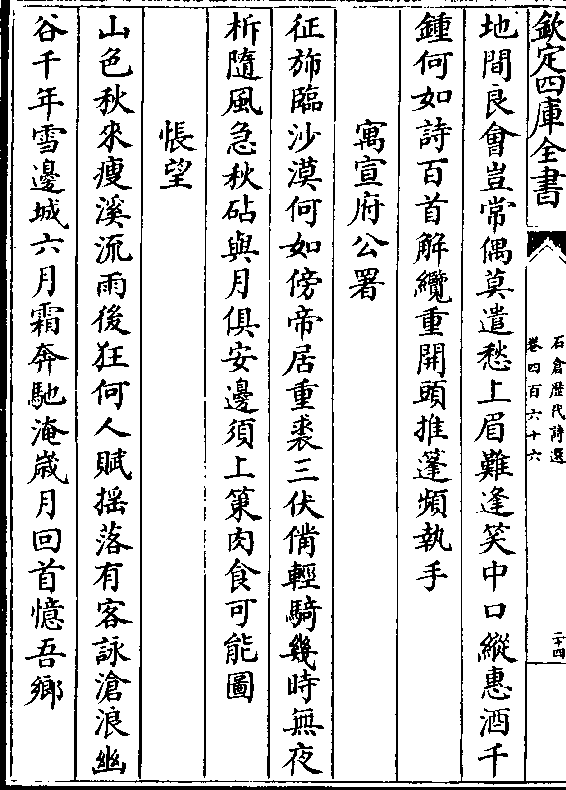 欽定四庫全書
石倉歴代詩選
卷四百六十六
二十四
地間良會豈常偶莫遣愁上眉難逢笑中口縱惠酒千
鍾何如詩百首解纜重開頭推蓬頻執手
寓宣府公署
征斾臨沙漠何如傍帝居重裘三伏備輕騎幾時無夜
柝隨風急秋砧與月俱安邊須上策肉食可能圖
悵望
山色秋來瘦溪流雨後狂何人賦揺落有客詠滄浪幽
谷千年雪邊城六月霜奔馳淹歳月回首憶吾鄉